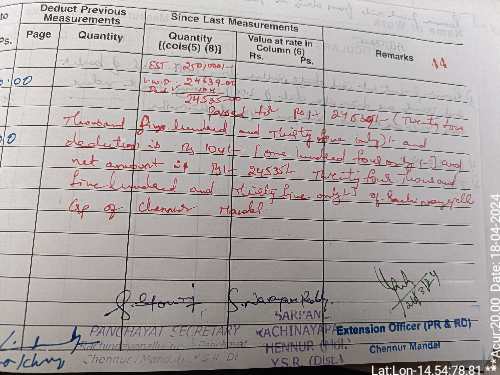 to
Deduct Previous Measurements
Since Last Measurements
Ps.
Page
Quantity
Quantity [(cols(5) (8)]
Value at rate in Column (6)
Rs. Ps.
Remarks
44
EST : 250,000/-
24639-00
104
24535-00
Passed for Rs/- 24539/- (Twenty four
Thousand five hundred and Thirty five only)/- and
deduction is Rs 104/- [one hundred four only/-] and
net amount is Rs/- 24535/- Twenty four Thousand
five hundred and Thirty five only/- of
Gp of Chennur Mandal
PANCHAYAT SECRETARY
Chennur Mandal Y.S.R. Di
SARPANCH
KACHINAYAPA
HENNUR
Y.S.R. (Dist.)
Extension Officer (PR & RD)
Chennur Mandal
Lat:Lon-14.54:78.81
Acu:20.00, Date: 18-04-2024